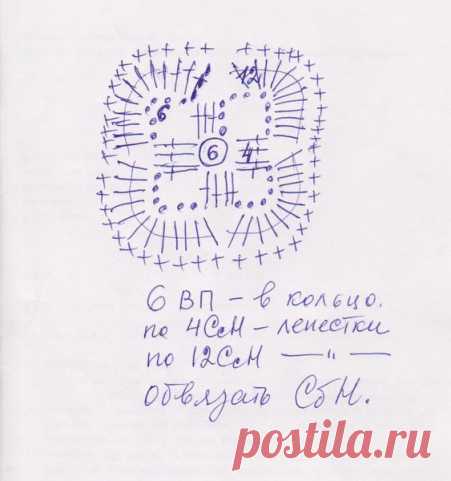 12
6
6 4
6 ВП – в кольцо.
по 4СсН – лепестки
по 12СсН —— " ——
Обвязать СбН.
postila.ru